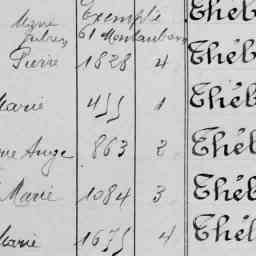 Exemple
61 Montauban Théb
Pierre 1828 4 Théb
Marie 455 1 Théb
Ange 863 2 Théb
Marie 1084 3 Théb
Marie 1675 4 Théb